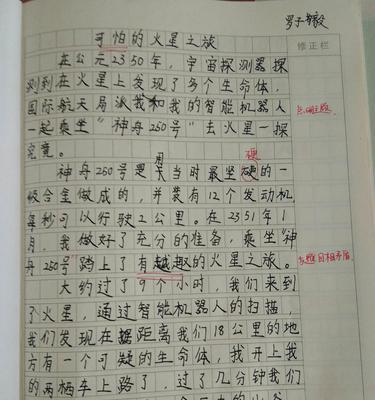 罗子
可怕的火星之旅
修正栏
在公元2350年，宇宙探测器探
测到在火星上发现了多个生命体，
国际航天局派我和我的智能机器人
一起乘坐“神舟250号”去火星一探
究竟。
用 硬
神舟250号是当时最坐硬的一
级合金做成的，并装有12个发动机
每秒可以行驶2公里。在2351年1
月，我做好了充分的准备，乘坐“神
舟250号”踏上了有趣的火星之旅。
大约过了9个小时，我们来到
了火星，通过智能机器人的扫描，
我们发现在距离我们18公里的地
方有一个可疑的生命体，我开上我
的两栖车上路了，过了几分钟我们